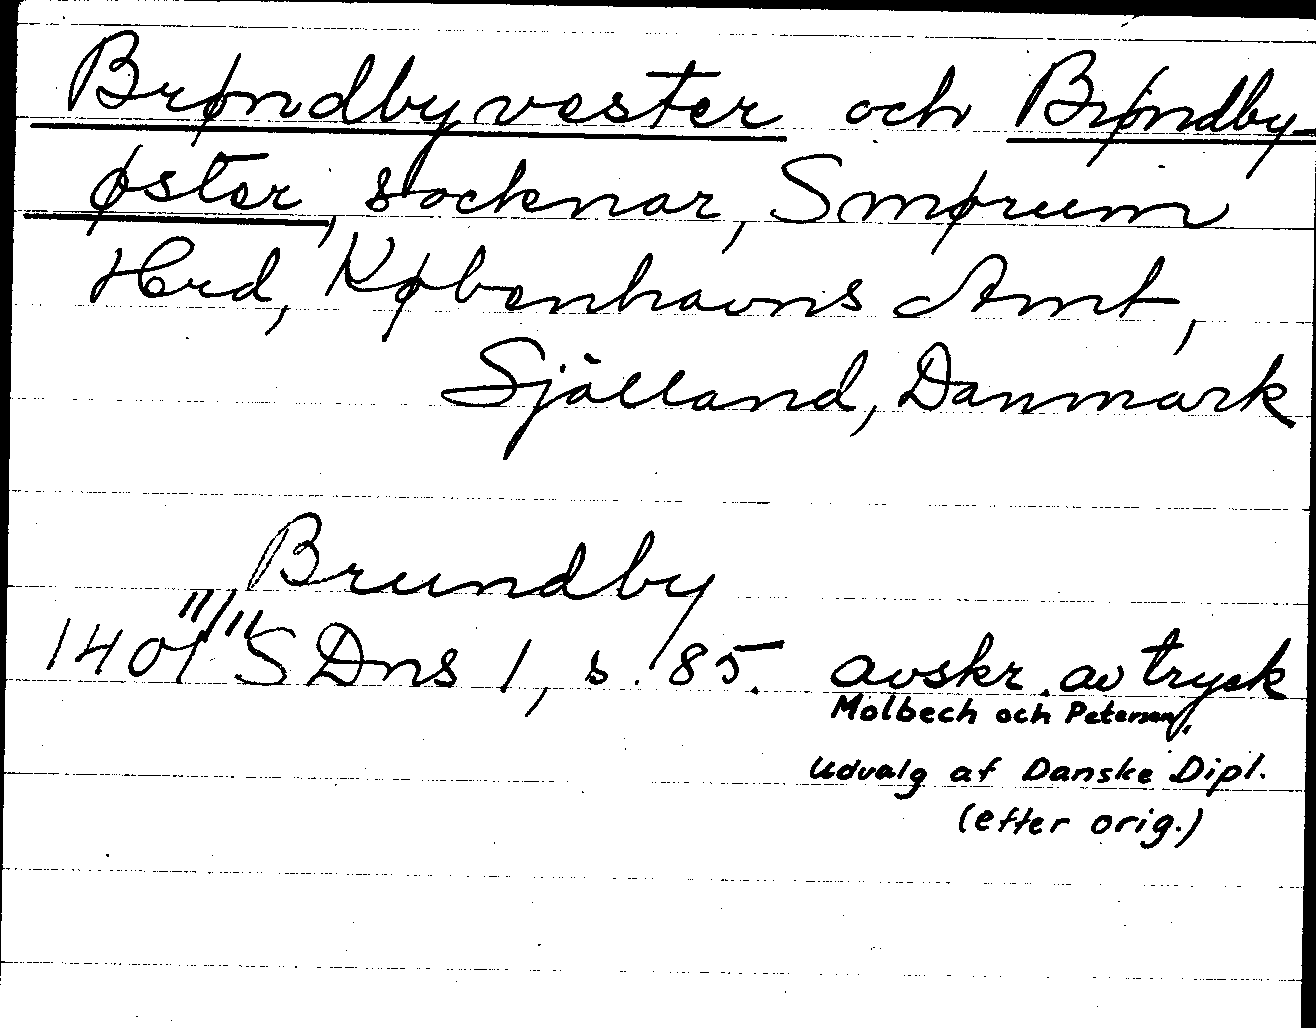 Brøndbyvester och Brøndby-
øster, socknar, Smørum
Hrd, Københavns Amt,
Själland, Danmark
Brundby
1401 11/11 SDns 1, s. 85. avskr. av tryck
Molbech och Petersen,
Udvalg af Danske Dipl.
(efter orig.)